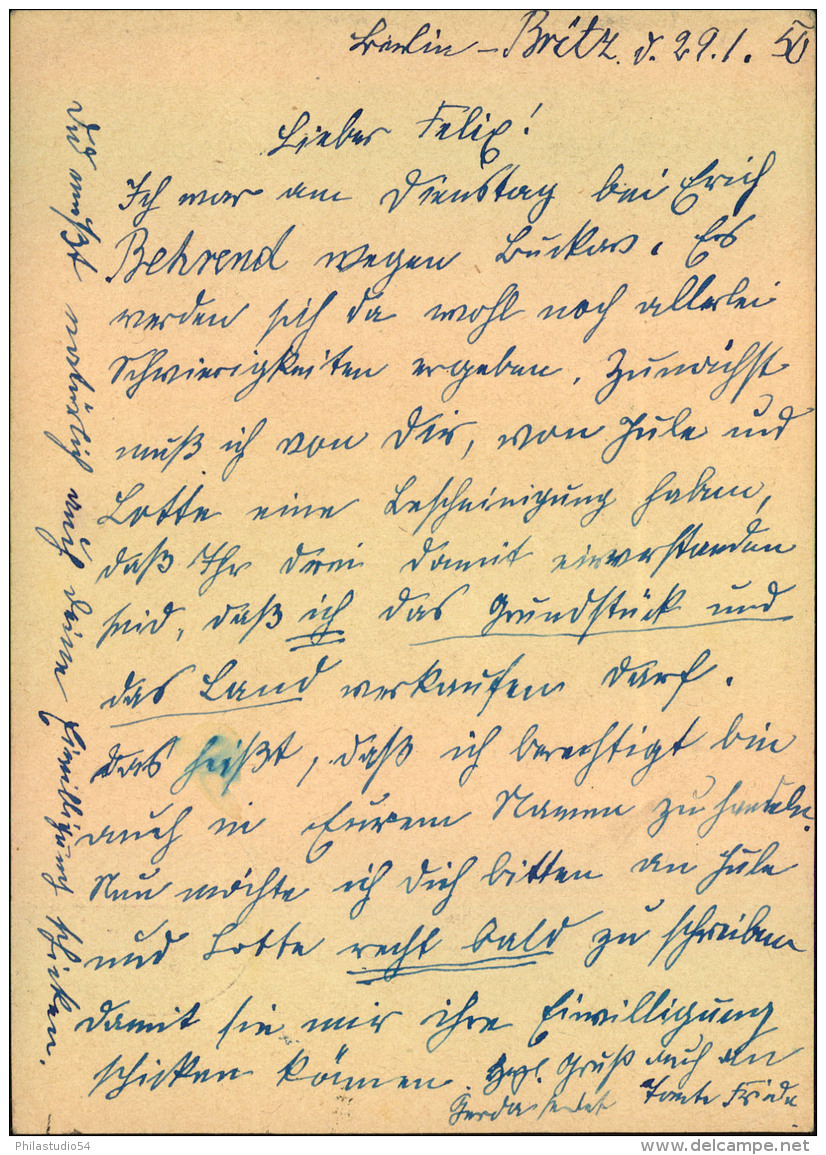 Berlin-Britz d. 29.1. 50
Lieber Felix!
Ich war am Dienstag bei Erich
Behrend wegen Buckow. Es
werden sich da wohl noch allerlei
Schwierigkeiten ergeben. Zunächst
muß ich von Dir, von Jule und
Lotte eine Bescheinigung haben,
daß Ihr drei damit einverstanden
seid, daß ich das Grundstück und
das Land verkaufen darf.
das heißt, daß ich berechtigt bin
auch in Eurem Namen zu handeln.
Nun möchte ich Dich bitten an Jule
und Lotte recht bald zu schreiben
damit sie mir ihre Einwilligung
schicken können. Hrzl. Gruß auch an
Gerda sendet Tante Frieda
Du mußt natürlich auch deine Einwilligung schicken.
Philastudio54
www.delcampe.net